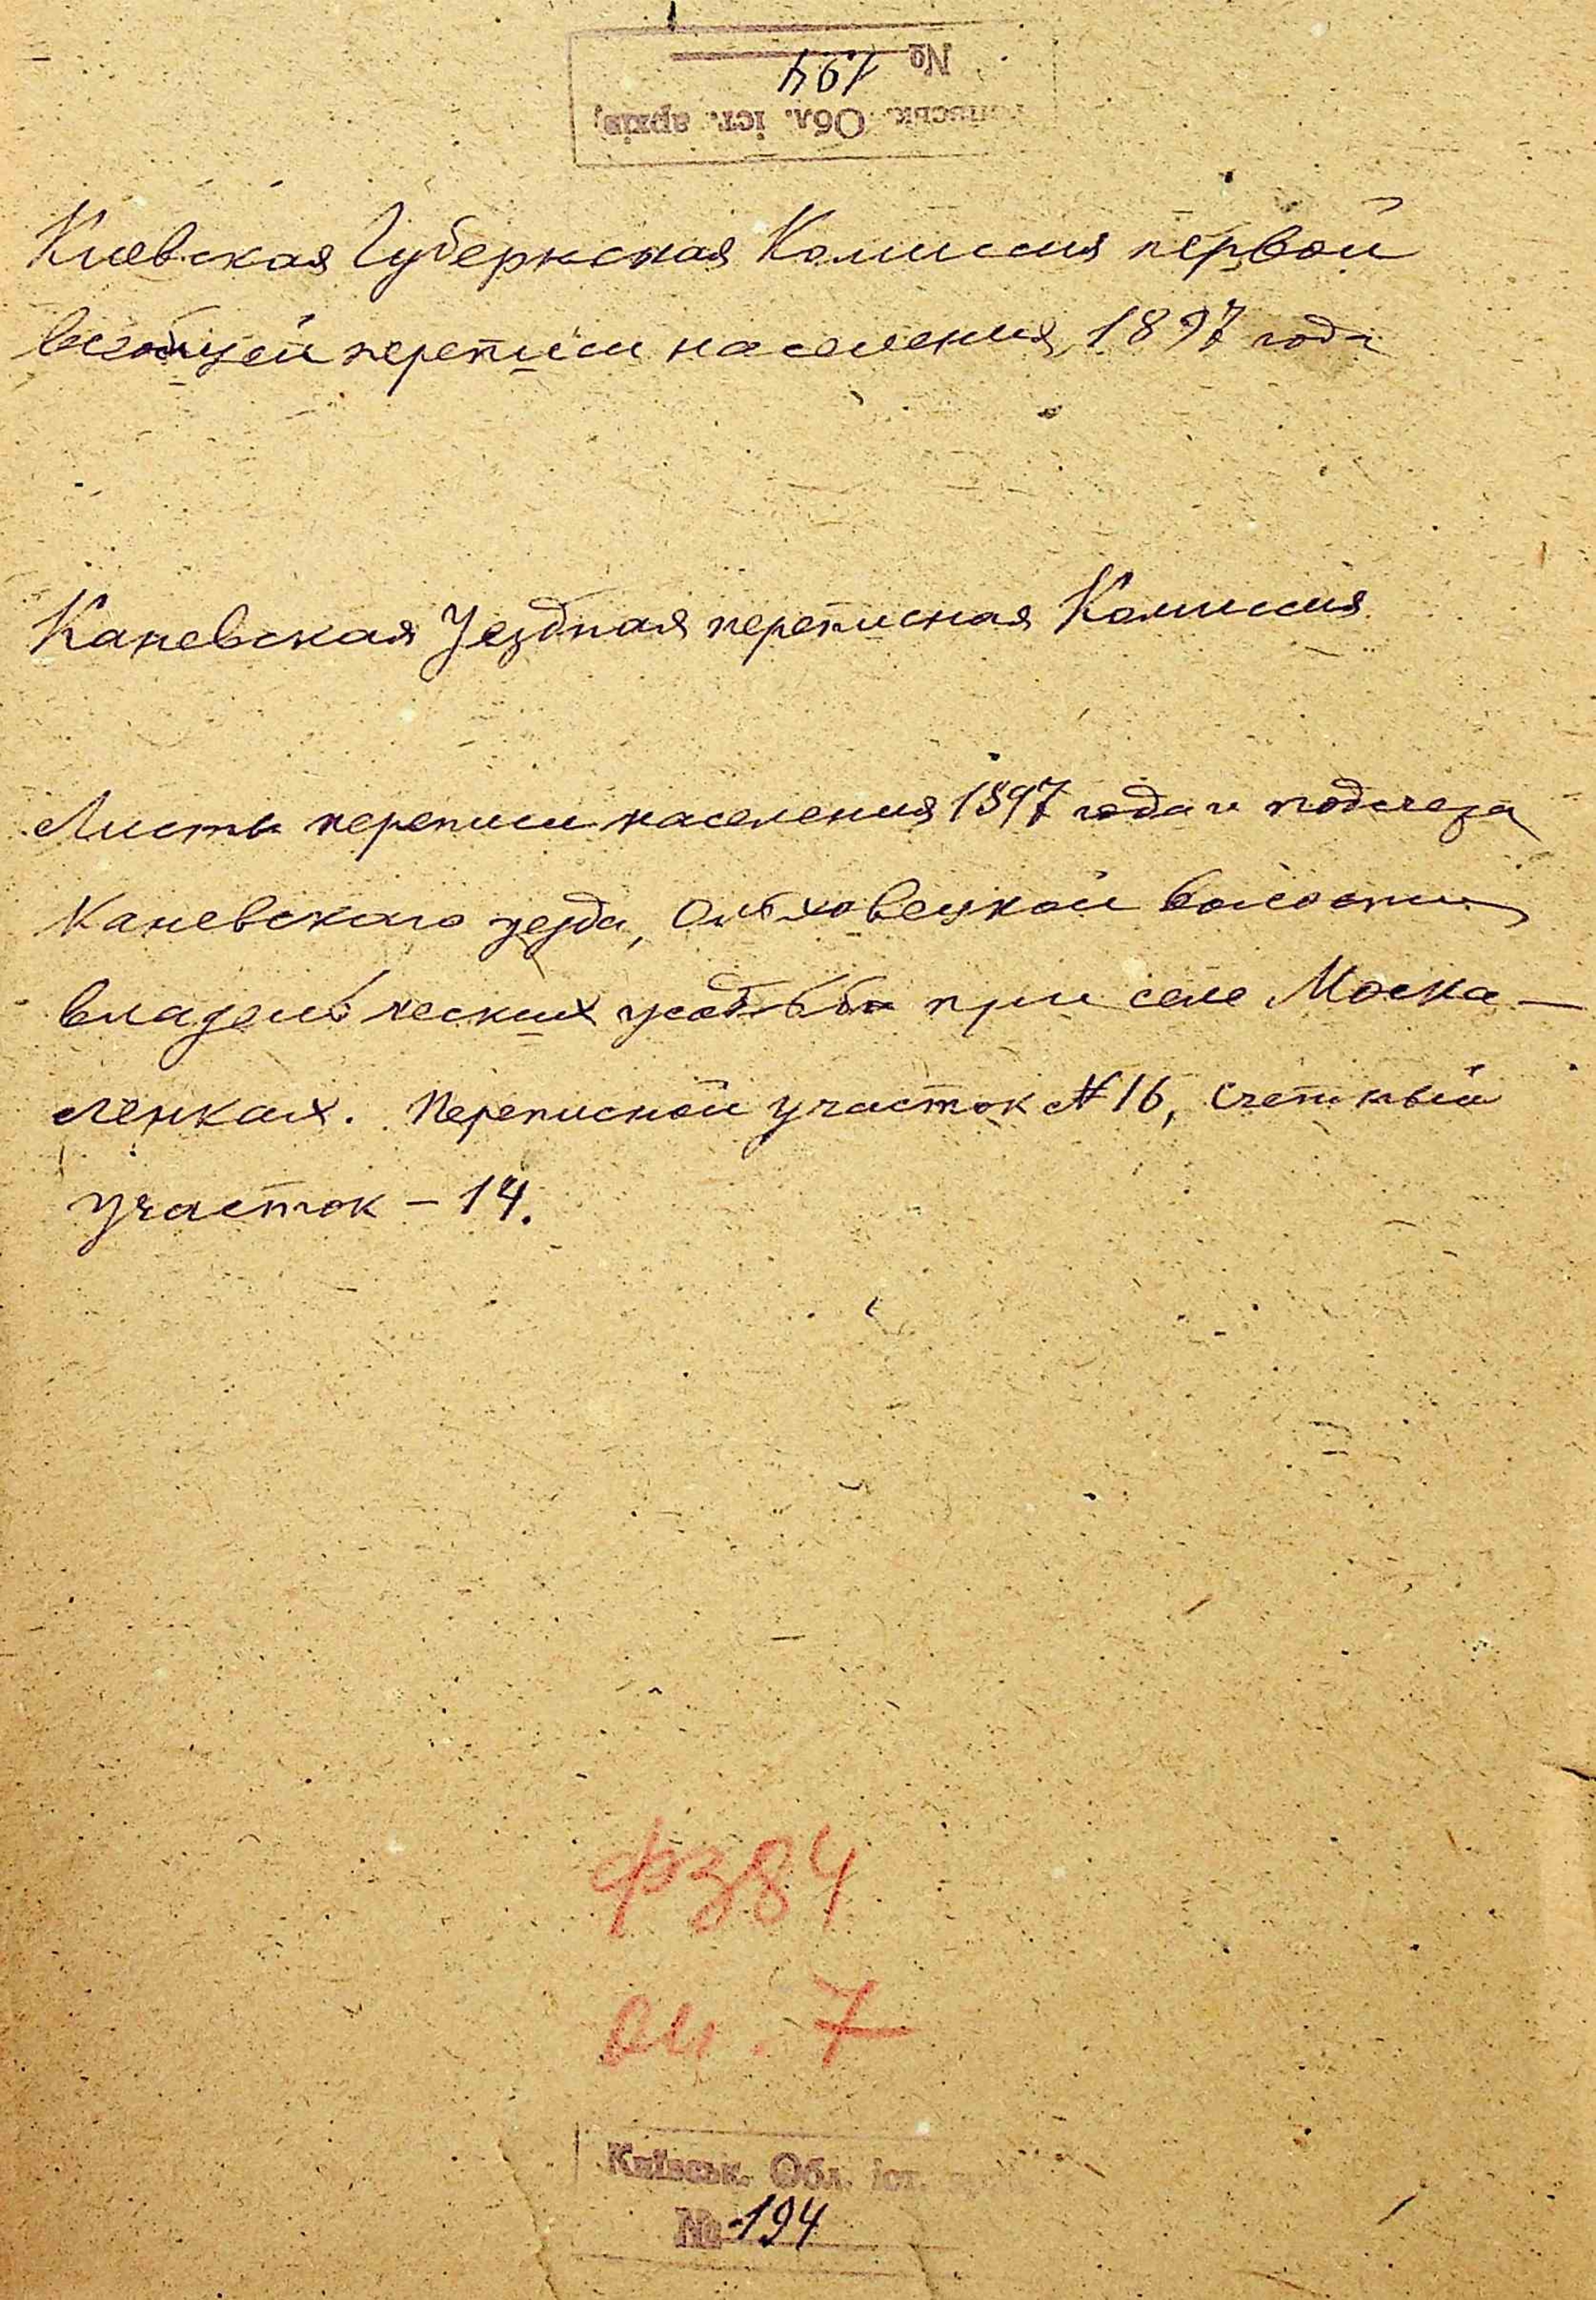 № 194
Київськ. Обл. іст. архів
Киевская Губернская Комиссия первой
всеобщей переписи населения 1897 года
Каневская Уездная переписная Комиссия
Листы переписи населения 1897 года и подсчета
Каневского уезда, Ольховецкой волости
владельческих усадьбы при селе Моска—
ленках. Переписной участок №16, счетный
участок – 14.
ф 384
оп. 7
Київськ. Обл. іст. архів
№ 194